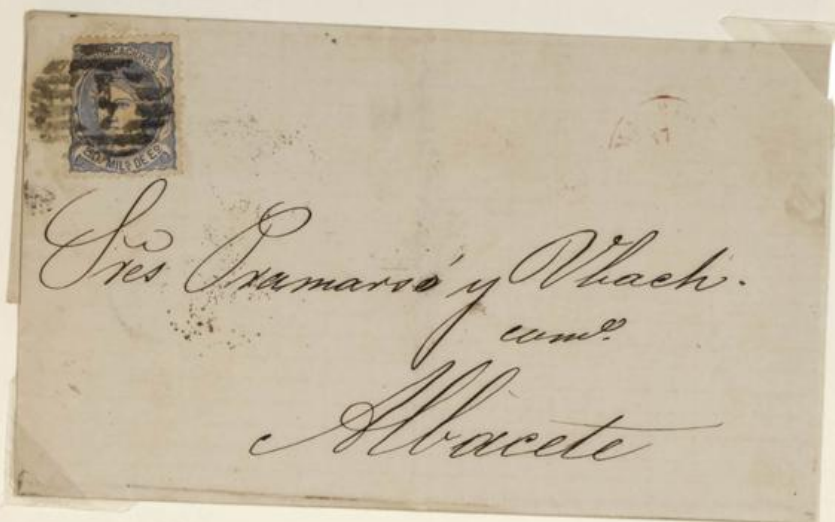 COMUNICACIONES
50 MILs DE Eo
Sres Oxamarsó y Ubach.
como
Albacete